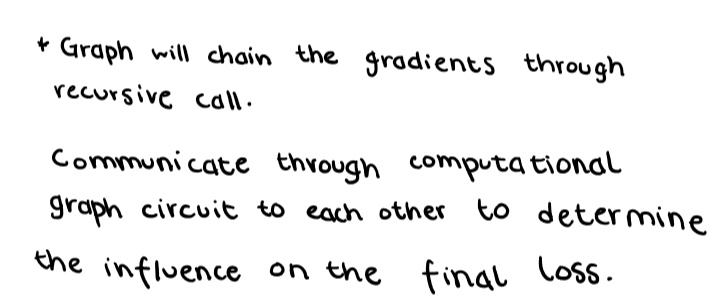 * Graph will chain the gradients through
recursive call.
Communicate through computational
graph circuit to each other to determine
the influence on the final loss.